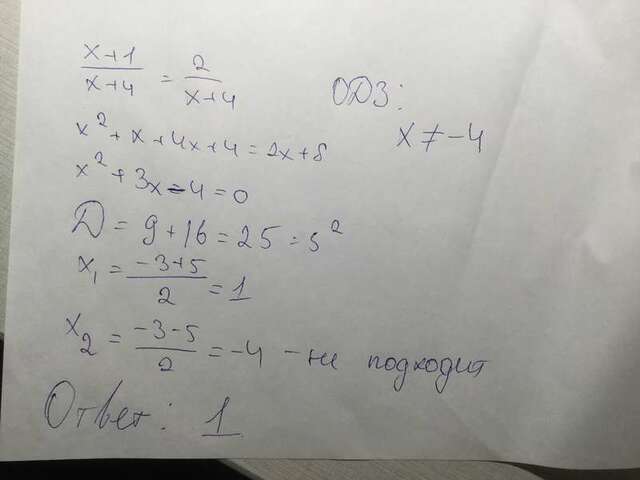 x+1/x+4 = 2/x+4
ОДЗ:
x ≠ -4
x² + x + 4x + 4 = 2x + 8
x² + 3x - 4 = 0
D = 9 + 16 = 25 = 5²
x₁ = -3+5/2 = 1
x₂ = -3-5/2 = -4 - не подходит
Ответ: 1